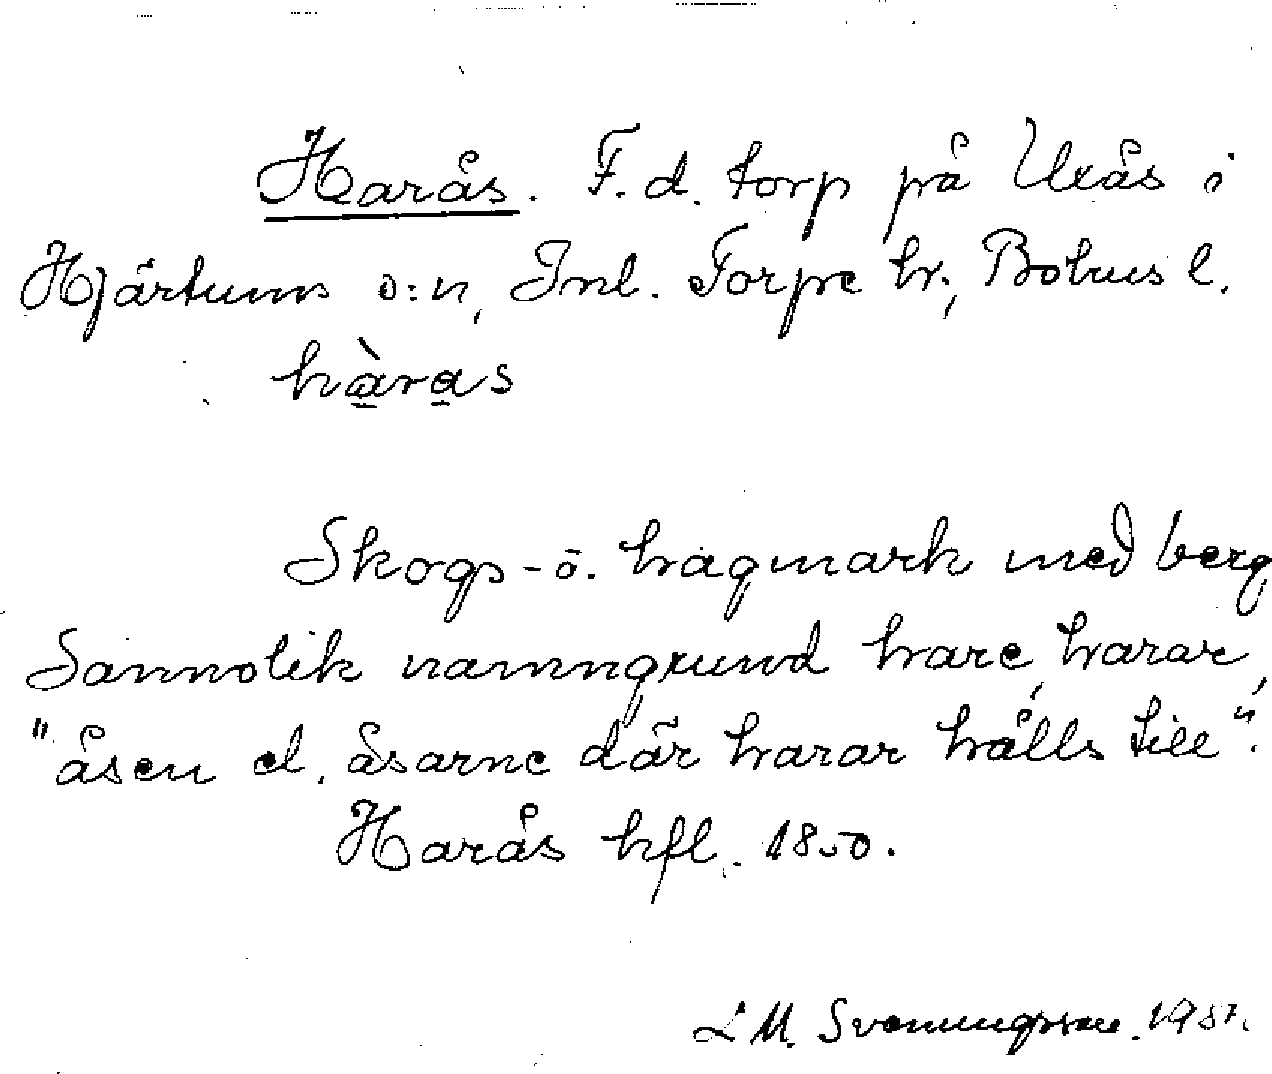 Harås. F.d. torp på Uxås i
Hjärtums s:n, Inl. Torpe hr., Bohus l.
hàras
Skogs- o. hagmark med berg
Sannolik namngrund hare, harar,
"åsen el. åsarne där harar hålls till".
Harås hfl. 1850.
L M. Svenungsson. 1957.